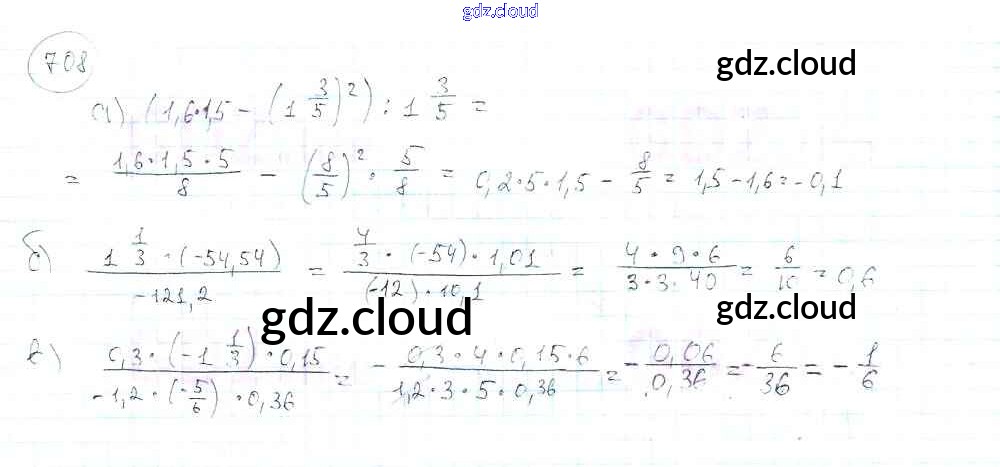 gdz.cloud
708
gdz.cloud
а) (1,6·1,5 - (1 3/5)²) : 1 3/5 =
= (1,6·1,5·5)/8 - (8/5)² · 5/8 = 0,2·5·1,5 - 8/5 = 1,5-1,6=-0,1
б) (1 1/3 · (-54,54))/(-121,2) = (4/3 · (-54)·1,01)/((-12)·10,1) = (4·9·6)/(3·3·40) = 6/10 = 0,6
gdz.cloud
gdz.cloud
в) (0,3·(-1 1/3)·0,15)/(-1,2·(-5/6)·0,36) = - (0,3·4·0,15·6)/(1,2·3·5·0,36) = - 0,06/0,36 = - 6/36 = - 1/6